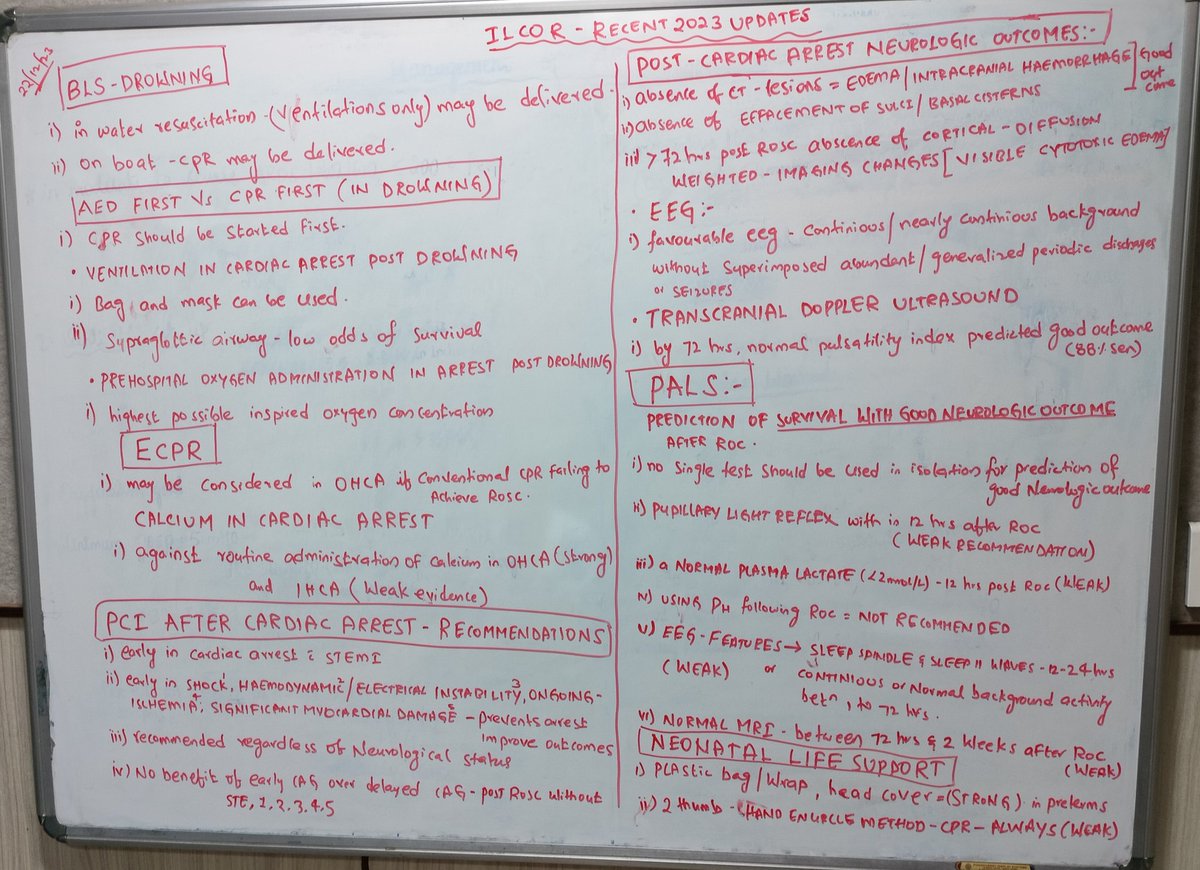 ILCOR - RECENT 2023 UPDATES
23/12/23
BLS - DROWNING
i) in water resuscitation - (Ventilations only) may be delivered.
ii) on boat - CPR may be delivered.
AED FIRST Vs CPR FIRST (IN DROWNING)
i) CPR should be started first.
• VENTILATION IN CARDIAC ARREST POST DROWNING
i) Bag and mask can be used.
ii) Supraglottic airway - low odds of survival
• PREHOSPITAL OXYGEN ADMINISTRATION IN ARREST POST DROWNING
i) highest possible inspired oxygen concentration
ECPR
i) may be considered in OHCA if Conventional CPR failing to
Achieve ROSC.
CALCIUM IN CARDIAC ARREST
i) against routine administration of calcium in OHCA (strong)
and IHCA (Weak evidence)
PCI AFTER CARDIAC ARREST - RECOMMENDATIONS
i) early in cardiac arrest c̄ STEMI
ii) early in SHOCK¹, HAEMODYNAMIC²/ELECTRICAL INSTABILITY³, ONGOING-
ISCHEMIA⁴, SIGNIFICANT MYOCARDIAL DAMAGE⁵ - prevents arrest
improve outcomes
iii) recommended regardless of Neurological status
iv) No benefit of early CAG over delayed CAG - post ROSC without
STE, 1, 2, 3, 4, 5
POST-CARDIAC ARREST NEUROLOGIC OUTCOMES:-
i) absence of CT - lesions = EDEMA/INTRACRANIAL HAEMORRHAGE
ii) absence of EFFACEMENT OF SULCI/BASAL CISTERNS
Good
out
come
iii) > 72 hrs post ROSC abscence of CORTICAL - DIFFUSION
WEIGHTED - IMAGING CHANGES [VISIBLE CYTOTOXIC EDEMA]
• EEG:-
i) favourable eeg - continious/nearly continious background
without superimposed abundant/generalized periodic discharges
or SEIZURES
• TRANSCRANIAL DOPPLER ULTRASOUND
i) by 72 hrs, normal pulsatility index predicted good outcome
(88% sen)
PALS:-
PREDICTION OF SURVIVAL WITH GOOD NEUROLOGIC OUTCOME
AFTER ROC.
i) no single test should be used in isolation for prediction of
good Neurologic outcome
ii) PUPILLARY LIGHT REFLEX with in 12 hrs after ROC
(WEAK RECOMMENDATION)
iii) a NORMAL PLASMA LACTATE (<2mmol/L) - 12 hrs post ROC (WEAK)
iv) USING PH following ROC = NOT RECOMMENDED
v) EEG-FEATURES → SLEEP SPINDLE & SLEEP II WAVES - 12-24 hrs
(WEAK) or CONTINIOUS or Normal background activity
betn 1 to 72 hrs.
vi) NORMAL MRI - between 72 hrs & 2 Weeks after ROC
(WEAK)
NEONATAL LIFE SUPPORT
i) PLASTIC bag/Wrap, head cover = (STRONG) in preterms
ii) 2 thumb - HAND ENCIRCLE METHOD - CPR - ALWAYS (WEAK)